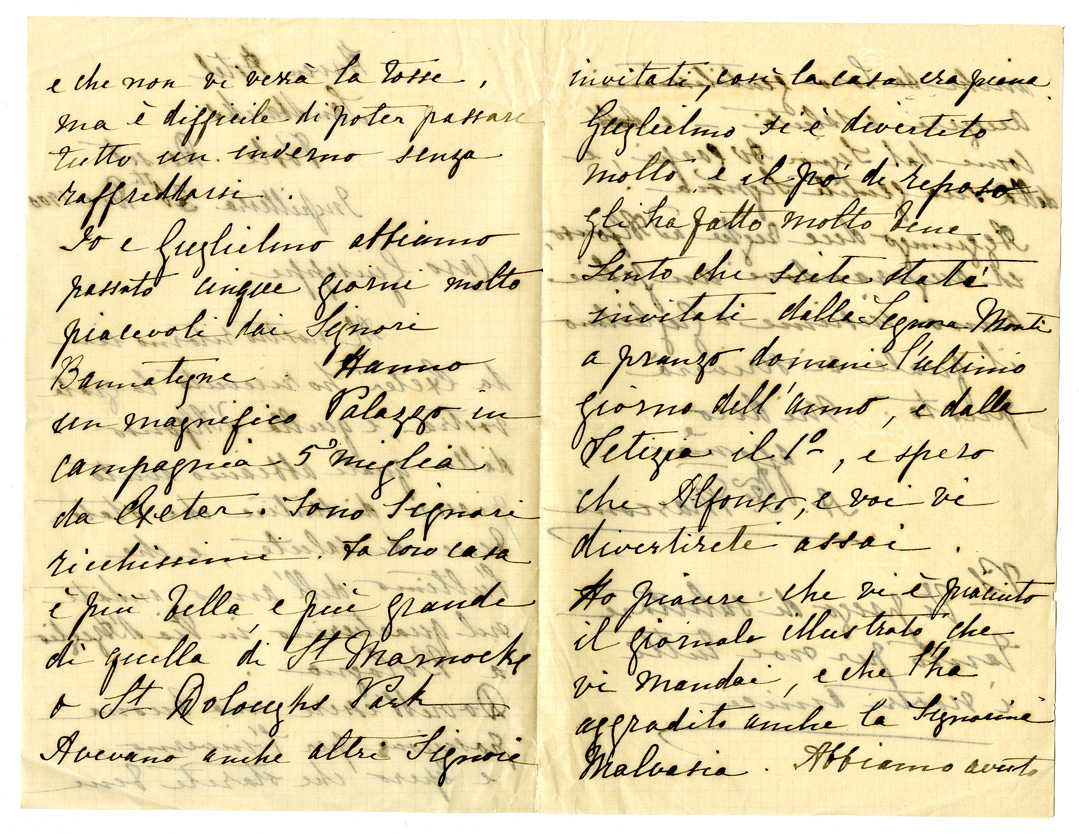 e che non vi verrà la tosse,
ma è difficile di poter passare
tutto un inverno senza
raffreddarsi.
Io e Guglielmo abbiamo
passato cinque giorni molto
piacevoli dai Signori
Bannatyne. Hanno
un magnifico Palazzo in
campagnia 5 miglia
da Exeter. Sono Signori
ricchissimi. La loro casa
è più bella, e più grande
di quella di St Marnocks
o St Doloughs Park
Avevano anche altri Signori
invitati, così la casa era piena.
Guglielmo si è divertito
molto, e il pò di reposo
gli ha fatto molto bene.
Sento che siete stati
invitati dalla Signora Monti
a pranzo domani l'ultimo
giorno dell'anno, e dalla
Letizia il 1º, e spero
che Alfonso, e voi vi
divertirete assai.
Ho piacere che vi è piaciuto
il giornale illustrato che
vi mandai, e che l'ha
aggradito anche la Signorina
Malvasia. Abbiamo avuto